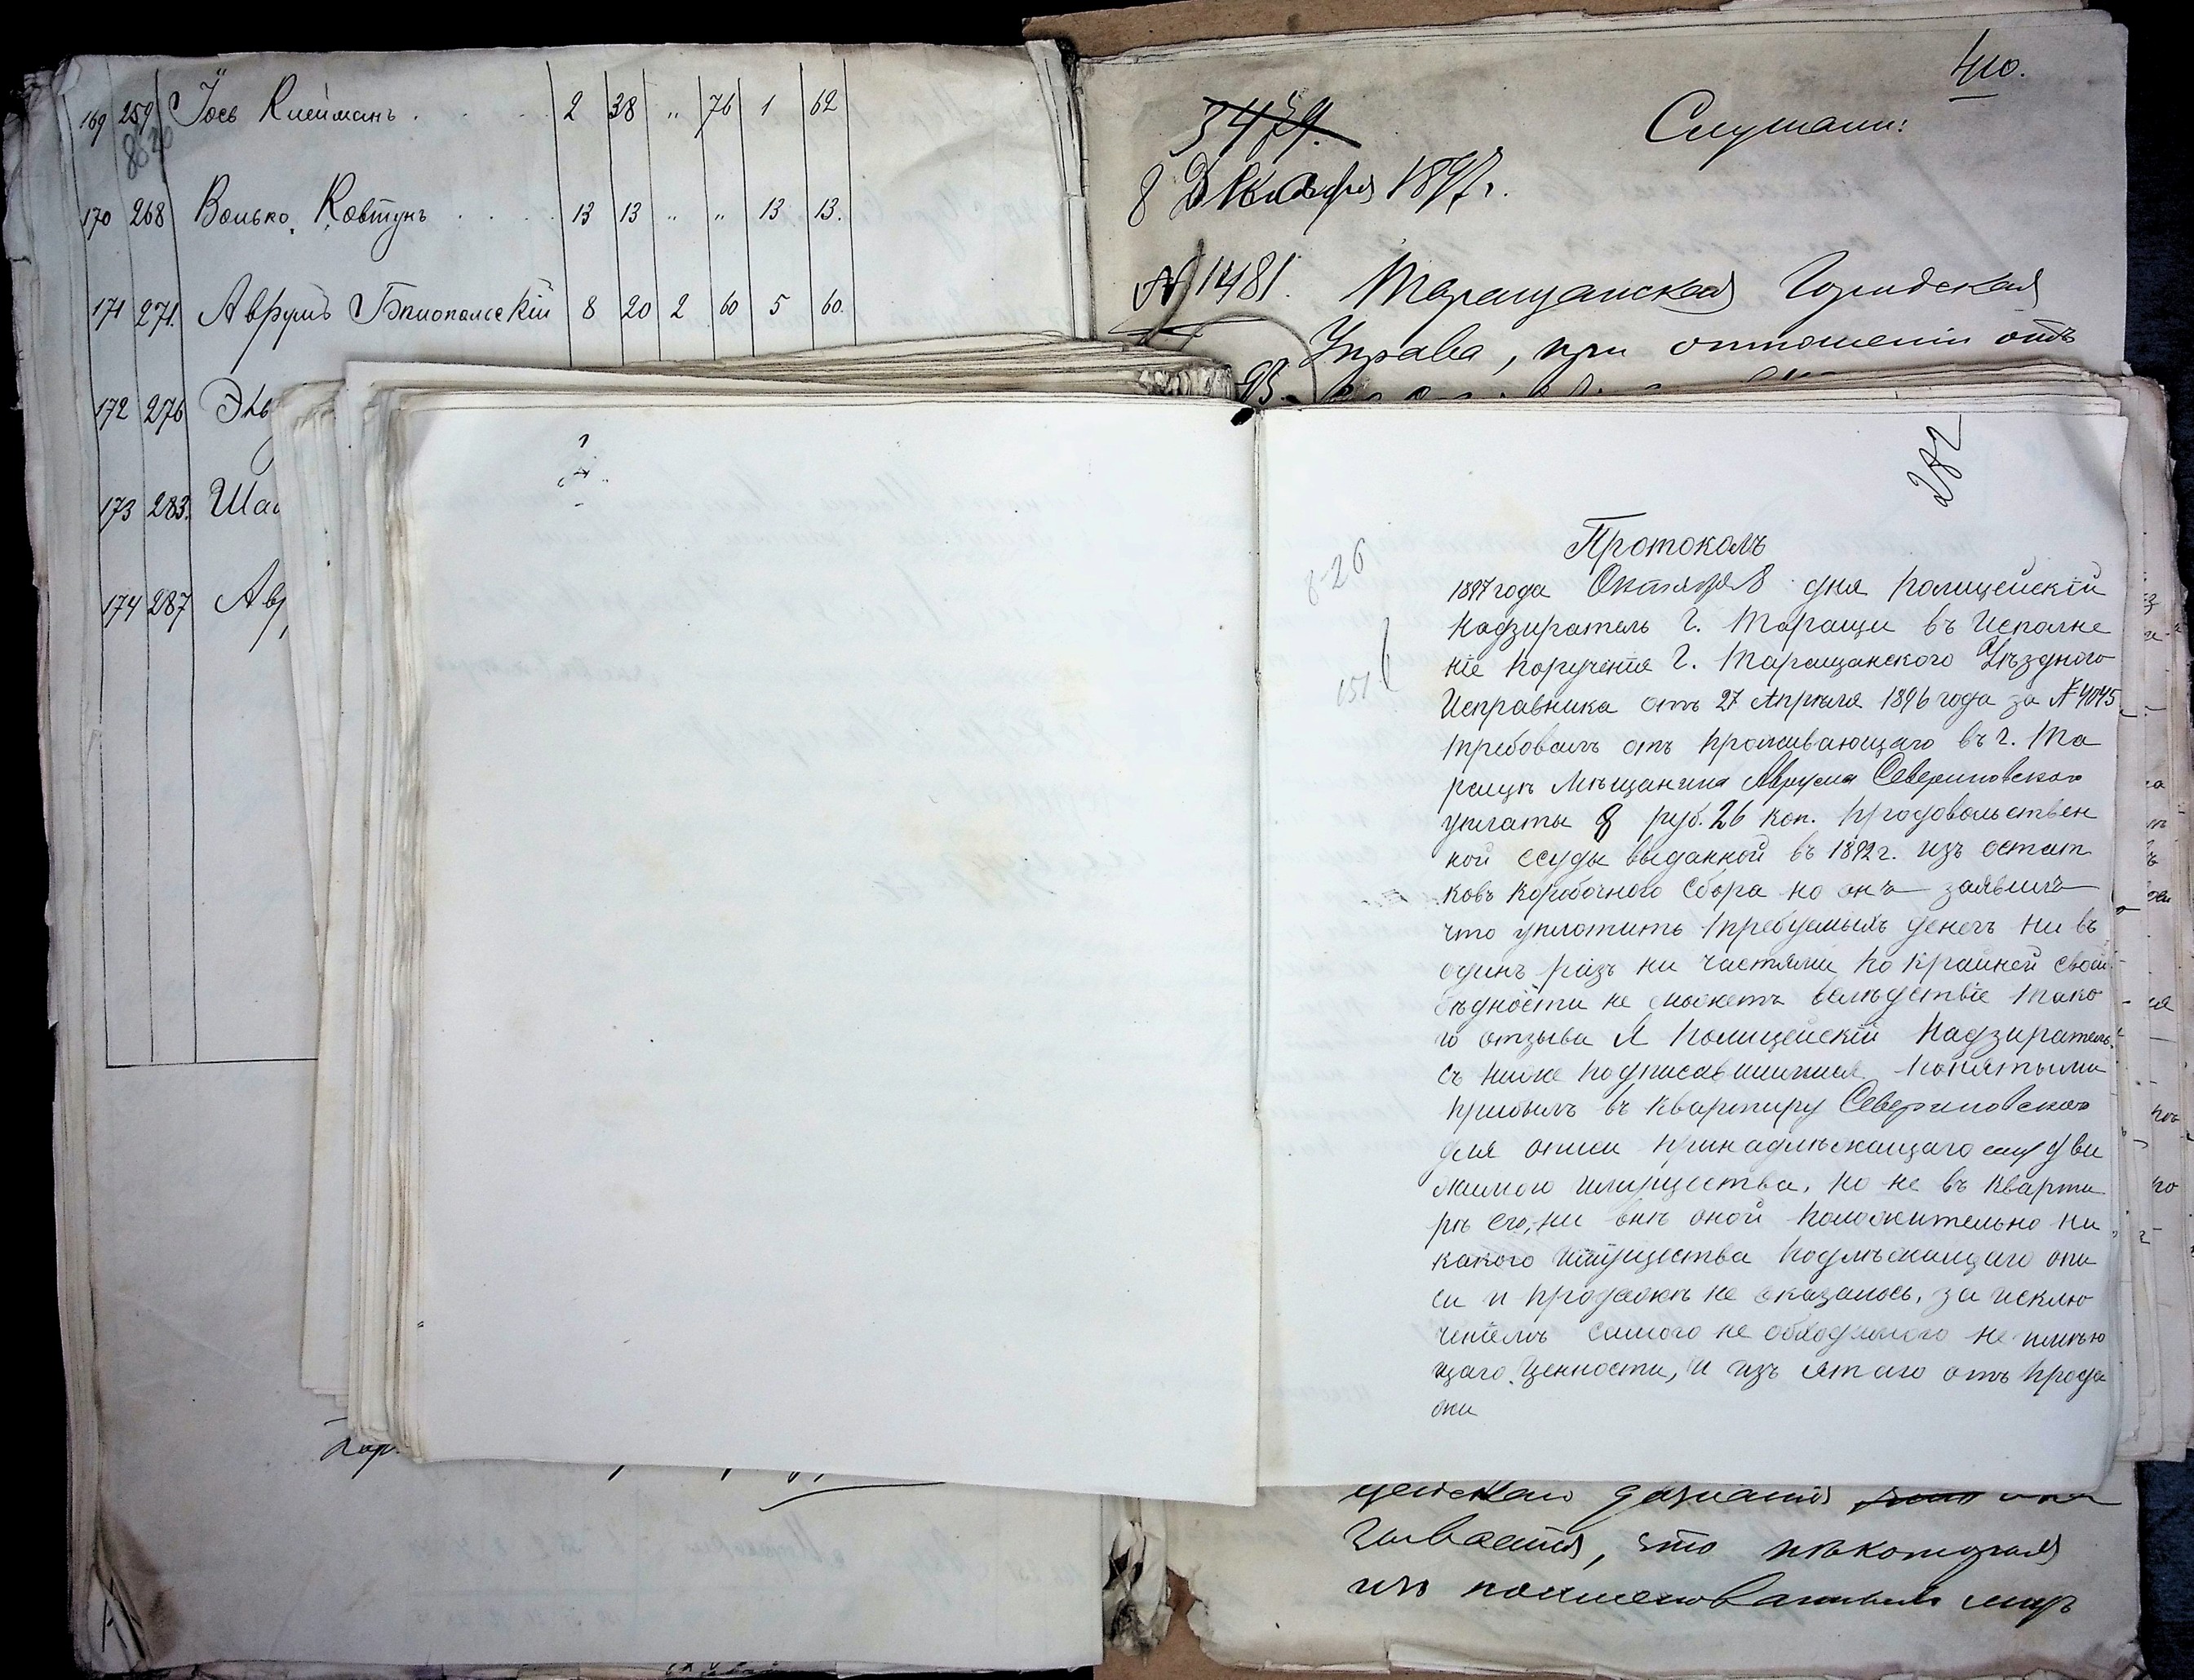 169 259 Іось Клейманъ . . . . 2 38 „ 76 1 62
170 268 Волько Ковтунъ . . . . 13 13 „ „ 13 13.
171 271. Аврумъ Бялопольскій 8 20 2 60 5 60.
172 276
173 283.
174 287
410.
3479.
Слушали:
8 Декабря 1897 г.
№ 14181.
Таращанская Городская
Управа, при отношеніи отъ
282
8-26
151
Протоколъ
1897 года Октября 8 дня Полицейскій
Надзиратель г. Таращи въ исполне
ніе порученія г. Таращанского Уѣздного
Исправника отъ 27 Апрѣля 1896 года за № 4045
требовалъ отъ проживающаго въ г. Та
ращѣ мѣщанина Аврума Севериновского
уплаты 8 руб. 26 коп. продовольствен
ной ссуды выданной въ 1892 г. изъ остат
ковъ коробочного сбора но онъ заявилъ
что уплотить требуемыхъ денегъ ни въ
одинъ разъ ни частями по крайней своей
бѣдности не можетъ вслѣдствіе тако
го отзыва Я Полицейскій Надзиратель
съ ниже подписавшимися понятыми
прибылъ въ квартиру Севериновского
для описи принадлѣжащаго ему дви
жимого имущества, но не въ кварти
рѣ его, ни внѣ оной положительно ни
какого имущества подлѣжащаго опи
си и продажѣ не оказалось, за исклю
ченіемъ самого не обходимого не имѣю
щаго ценности, и изъятаго отъ прода
жи
дознанія
что нѣкоторая
изъ поименованныхъ